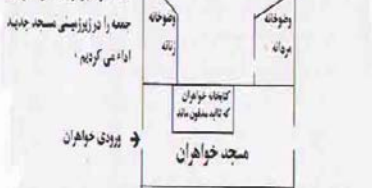 جمعه را در زیرزمینی مسجد جدید
اداء می کردیم .
وضوخانه
مردانه
وضوخانه
زنانه
کتابخانه خواهران
که تاابد مدفون ماند
ورودی خواهران
مسجد خواهران